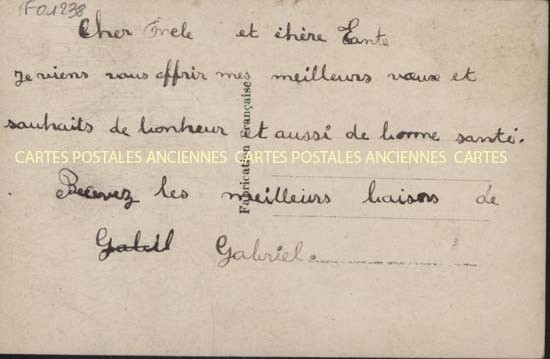 F01238
Cher Oncle et chère Tante
je viens vous offrir mes meilleurs vœux et
souhaits de bonheur et aussi de bonne santé.
CARTES POSTALES ANCIENNES CARTES POSTALES ANCIENNES CARTES
Recevez les meilleurs baisers de
Gabriel.
Fabrication Française